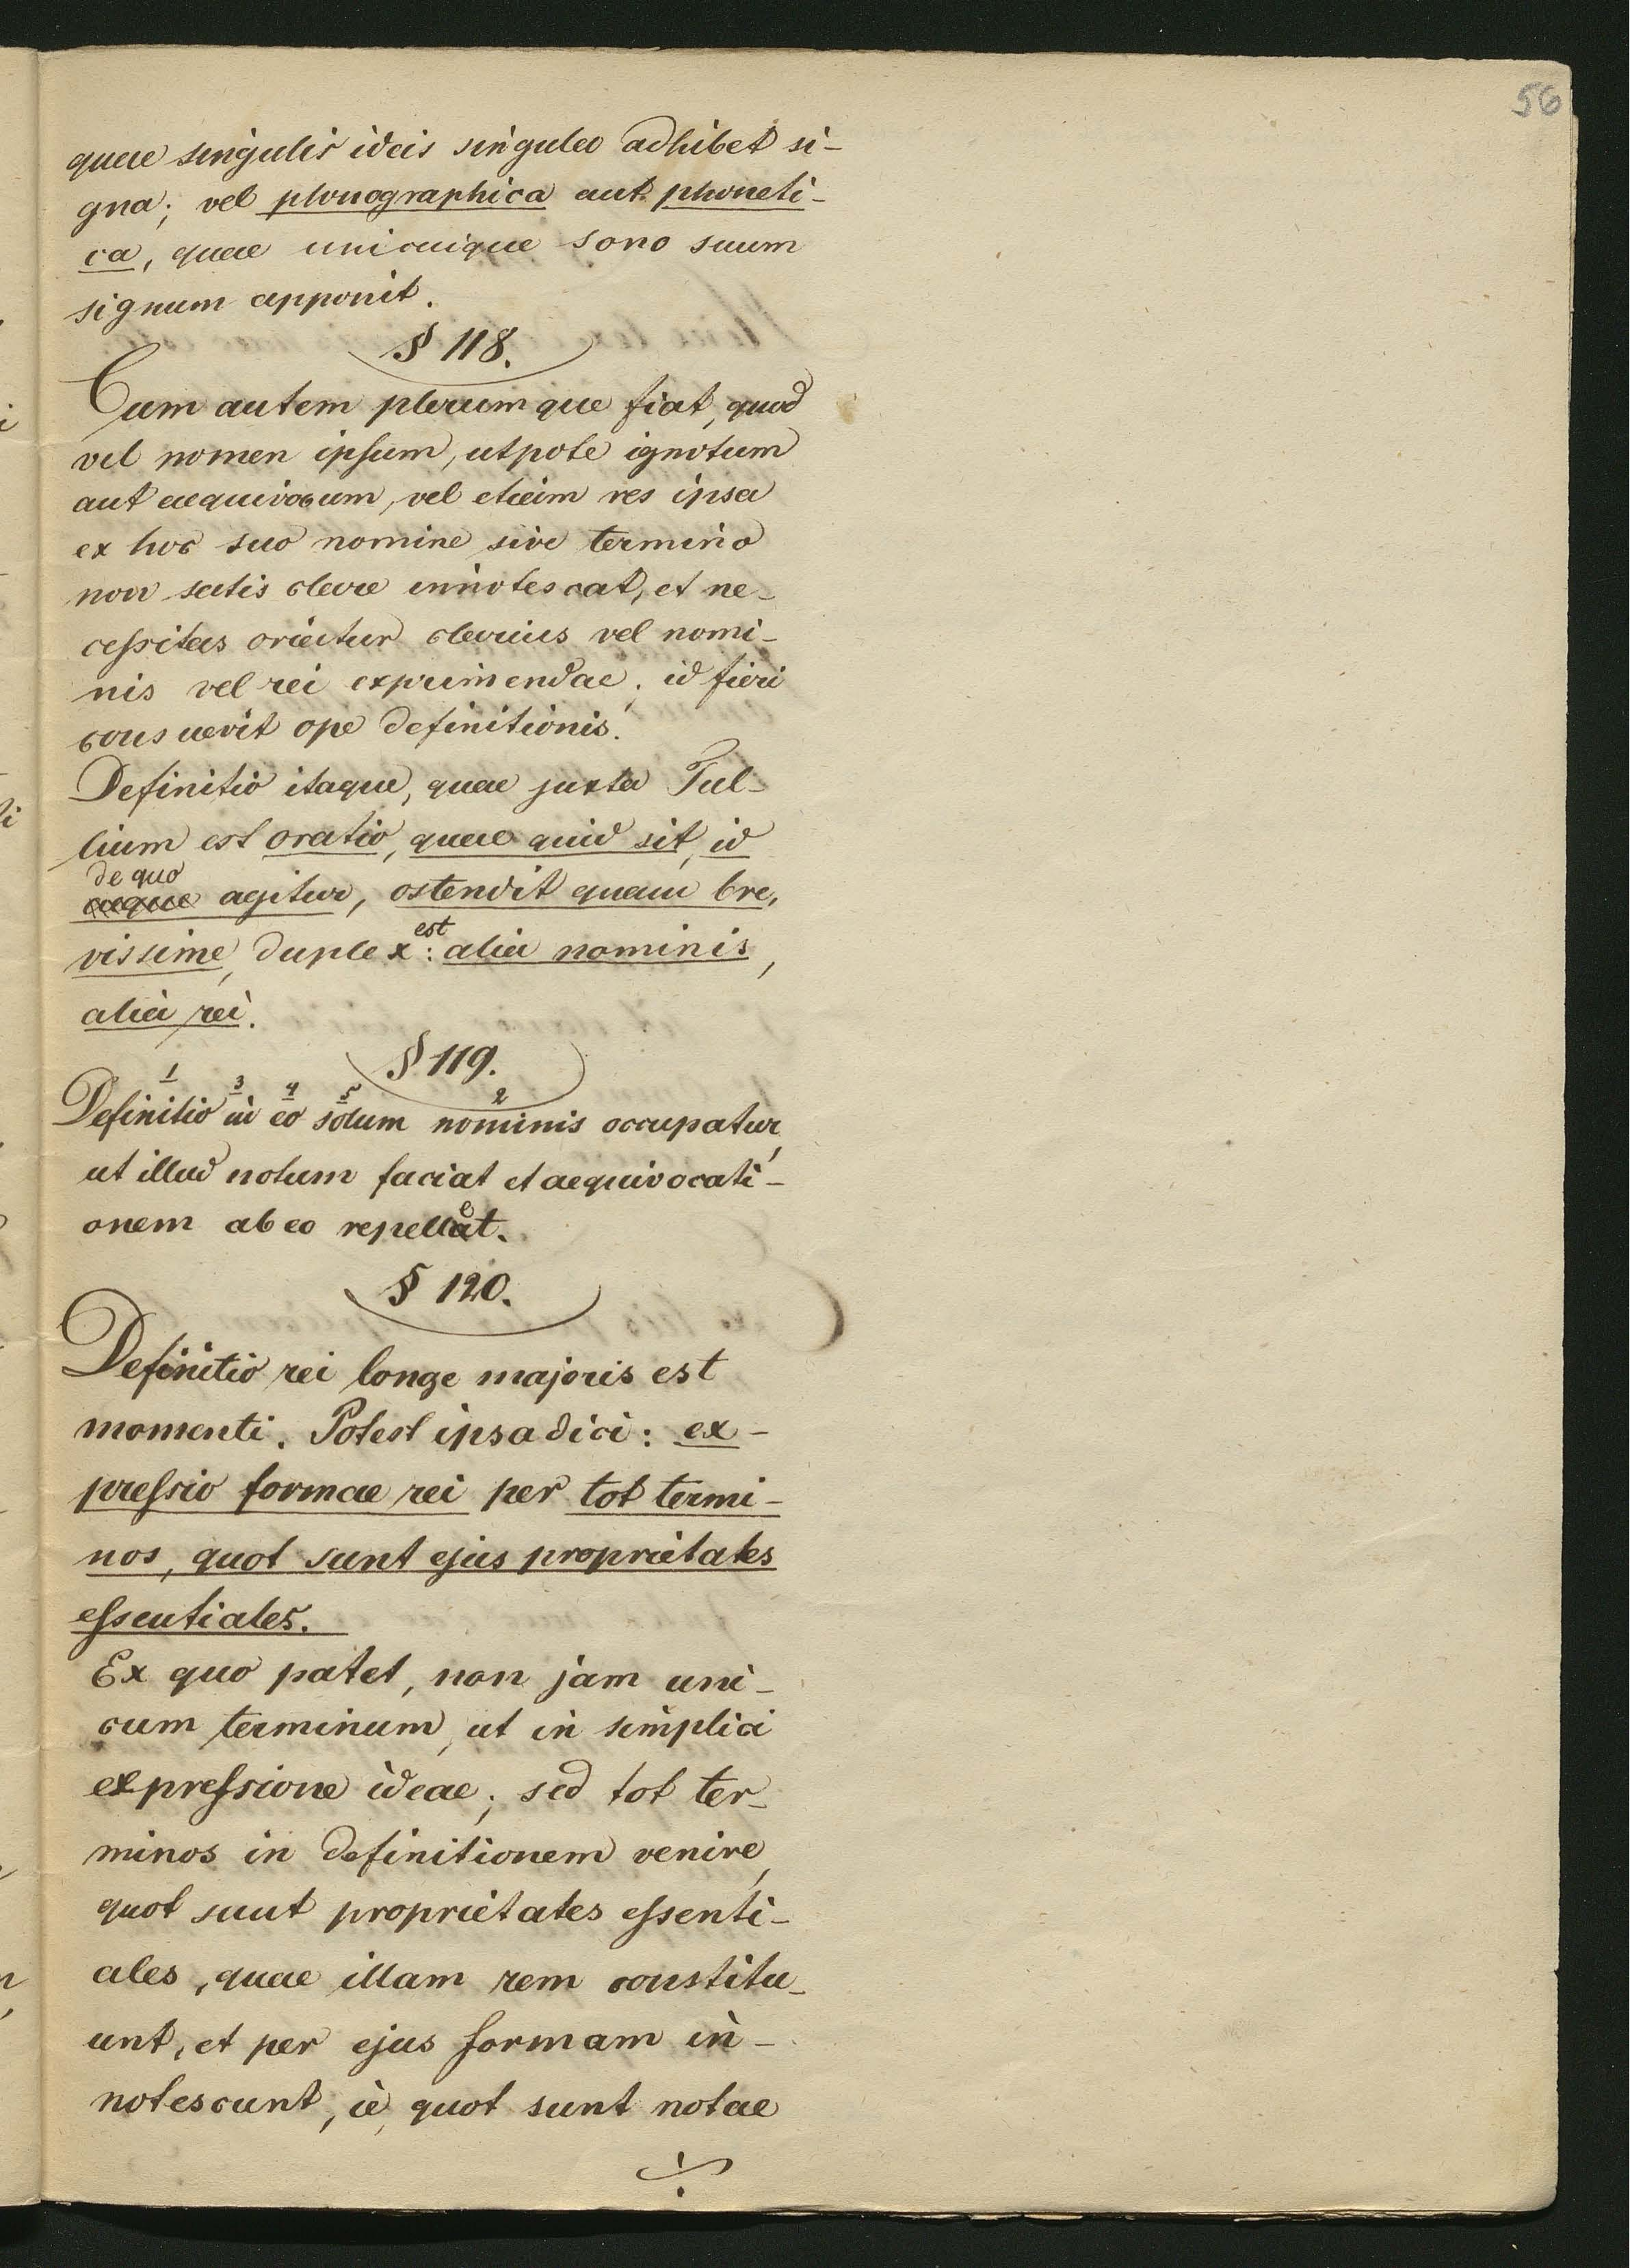 56
quae singulis ideis singula adhibet si-
gna; vel phonographica aut phoneti-
ca, quae unicuique sono suum
signum apponit.
§ 118.
Cum autem plerumque fiat, quod
vel nomen ipsum, utpote ignotum
aut aequivocum, vel etiam res ipsa
ex hoc suo nomine sive termino
non satis clare innotescat, et ne-
cessitas oriatur clarius vel nomi-
nis vel rei exprimendae; id fieri
consuevit ope definitionis.
Definitio itaque, quae juxta Tul-
lium est oratio, quae quid sit, id
de quo
aeque agitur, ostendit quam bre,
est
vissime, duplex: alia nominis,
alia rei.
§ 119.
1 3 4 5 2
Definitio in eo solum nominis occupatur,
ut illud notum faciat et aequivocati-
e
onem ab eo repellat.
§ 120.
Definitio rei longe majoris est
momenti. Potest ipsa dici: ex-
pressio formae rei per tot termi-
nos, quot sunt ejus proprietates
essentiales.
Ex quo patet, non jam uni-
cum terminum, ut in simplici
expressione ideae; sed tot ter-
minos in definitionem venire,
quot sunt proprietates essenti-
ales, quae illam rem constitu-
unt, et per ejus formam in-
notescunt, ie, quot sunt notae